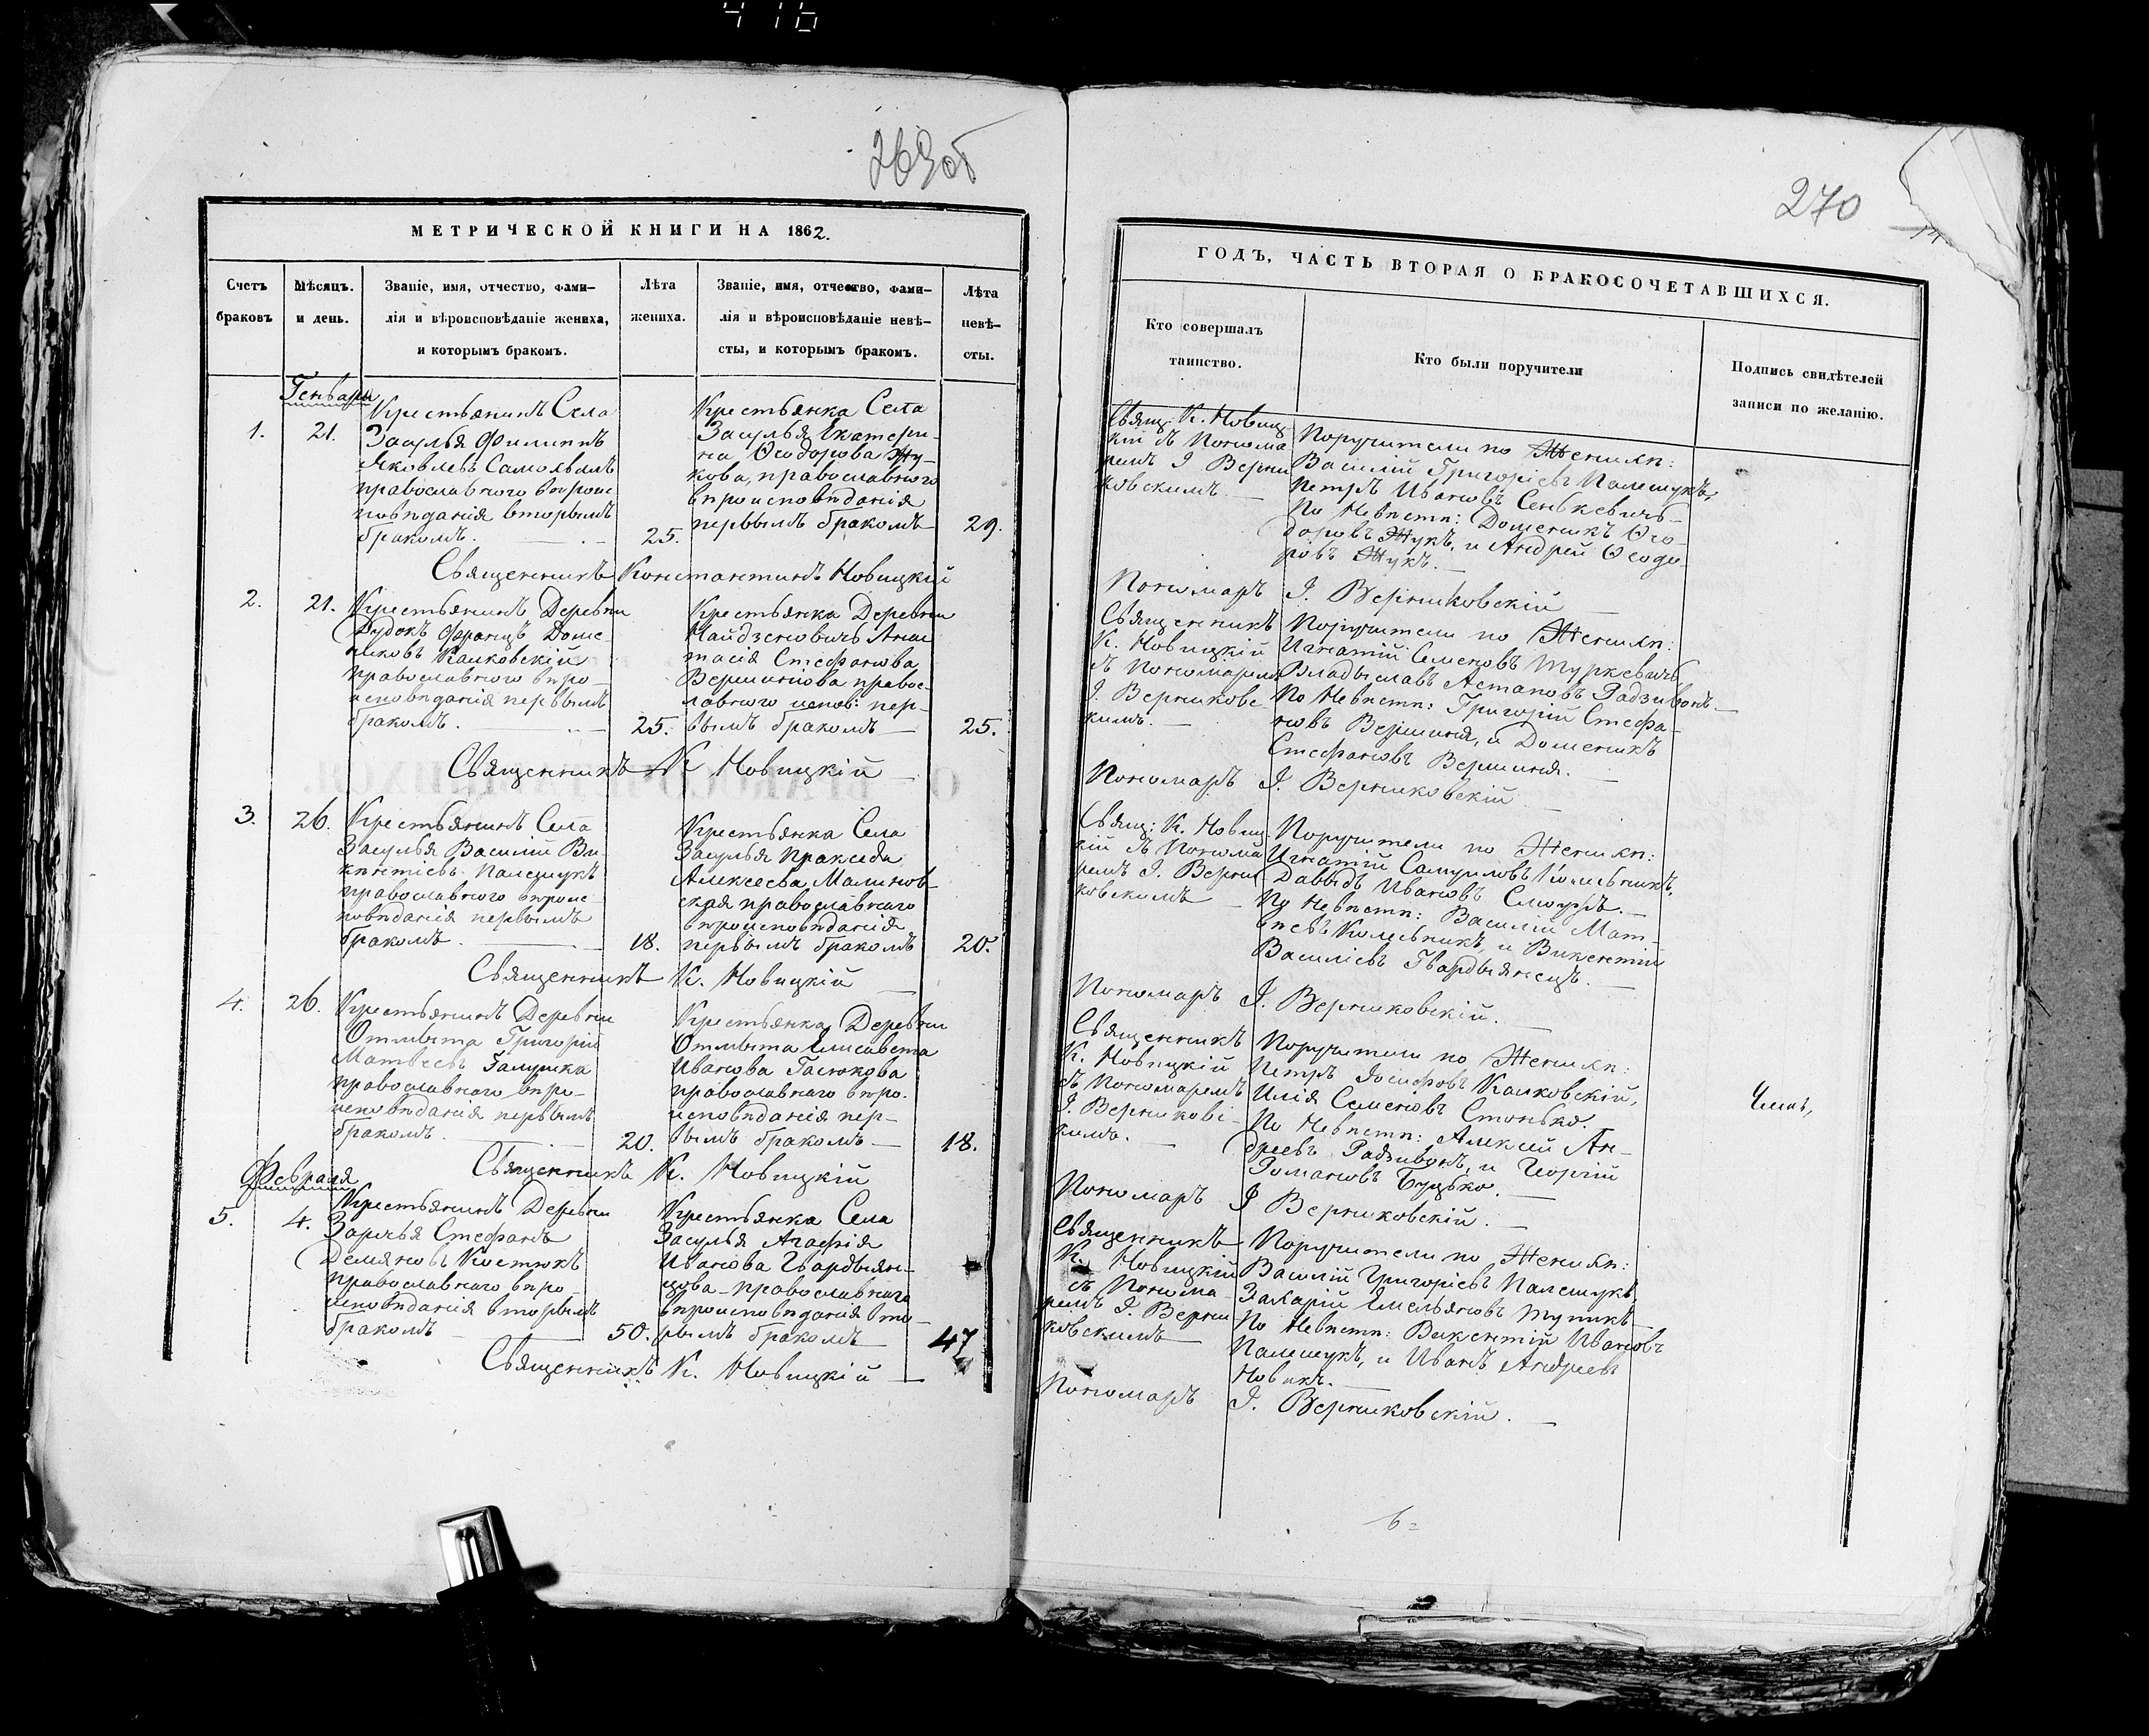 416
269об
МЕТРИЧЕСКОЙ КНИГИ НА 1862.
Счетъ браковъ
Мѣсяцъ. и день.
Званіе, имя, отчество, фами-
лія и вѣроисповѣданіе жениха,
и которымъ бракомъ.
Лѣта жениха.
Званіе, имя, отчество, фами-
лія и вѣроисповѣданіе невѣ-
сты, и которымъ бракомъ.
Лѣта невѣ-
сты.
Генваря
1.
21.
Крестьянинъ Села
Засулья Филиппъ
Яковлевъ Самоявъ
православнаго вѣроис
повѣданія вторымъ
бракомъ.
25.
Крестьянка Села
Засулья Екатери-
на Ѳеодорова Жу-
кова, православнаго
вѣроисповѣданія
первымъ бракомъ
29.
Священникъ Константинъ Новицкій
2.
21.
Крестьянинъ Деревни
Рудокъ Францъ Доме-
никовъ Калковскій
православнаго вѣро-
исповѣданія первымъ
бракомъ.
25.
Крестьянка Деревни
Найдзеновичъ Анас
тасія Стефанова
Вершинова правос-
лавнаго испов: пер-
вымъ бракомъ
25.
Священникъ К Новицкій
3.
26.
Крестьянинъ Села
Засулья Василій Ви-
кентіевъ Палещукъ
православнаго вѣроис
повѣданія первымъ
бракомъ.
18.
Крестьянка Села
Засулья Пракседа
Алексеева Малинов-
ская православнаго
вѣроисповѣданія
первымъ бракомъ
20.
Священникъ К. Новицкій
4.
26.
Крестьянинъ Деревни
Отмыта Григорій
Матвеевъ Галушка
православнаго вѣро-
исповѣданія первымъ
бракомъ.
20.
Крестьянка Деревни
Отмыта Елисавета
Иванова Гаюкова
православнаго вѣро-
исповѣданія пер-
вымъ бракомъ
18.
Священникъ К. Новицкій
Февраля
5.
4.
Крестьянинъ Деревни
Заречья Стефанъ
Демяновъ Костюкъ
православнаго вѣро-
исповѣданія вторымъ
бракомъ
50.
Крестьянка Села
Засулья Агафія
Иванова Гвардыян-
цова православнаго
вѣроисповѣданія вто-
рымъ бракомъ
47
Священникъ К. Новицкій
270
ГОДЪ, ЧАСТЬ ВТОРАЯ О БРАКОСОЧЕТАВШИХСЯ.
Кто совершалъ
таинство.
Кто были поручители
Подпись свидѣтелей
записи по желанію.
Свящ: К. Новиц-
кій съ Понома
ремъ І Верни
ковскимъ
Поручители по Женихѣ:
Василій Григоріевъ Палещукъ,
Петръ Ивановъ Сенькевичъ
По Невѣстѣ: Доменикъ Ѳео-
доровъ Жукъ, и Андрей Ѳеодо-
ровъ Жукъ.
Пономарь І. Верниковскій
Священникъ
К. Новицкій
съ Пономаремъ
І. Верниковс
кимъ.
Поручители по Женихѣ:
Игнатій Семеновъ Туркевичъ
Владыславъ Астаповъ Радзивонъ
По Невѣстѣ: Григорій Стефа-
новъ Вершиня, и Доменикъ
Стефановъ Вершиня.
Пономарь І. Верниковскій
Свящ: К. Новиц-
кій съ Понома
ремъ І. Верни
ковскимъ
Поручители по Женихѣ:
Игнатій Самуиловъ Колесникъ,
Давыдъ Ивановъ Смоуръ.
По Невѣстѣ: Василій Мат-
вѣевъ Колесникъ, и Викентій
Василіевъ Гвардыянецъ.
Пономарь І. Верниковскій.
Священникъ
К. Новицкій
съ Пономаремъ
І. Верниковс-
кимъ.
Поручители по Женихѣ:
Петръ Іосифовъ Калковскій,
Илія Семеновъ Стонько.
По Невѣстѣ: Алексей Ан-
дреевъ Радзивонъ, и Георгій
Романовъ Буцько.
Пономарь І Верниковскій.
Священникъ
К. Новицкій
съ Понома-
ремъ І. Верни
ковскимъ
Поручители по Женихѣ:
Василій Григоріевъ Палещукъ,
Захарій Емельяновъ Тупикъ
По Невѣстѣ: Викентій Ивановъ
Палещукъ, и Иванъ Андреевъ
Новикъ.
Пономарь І. Верниковскій.